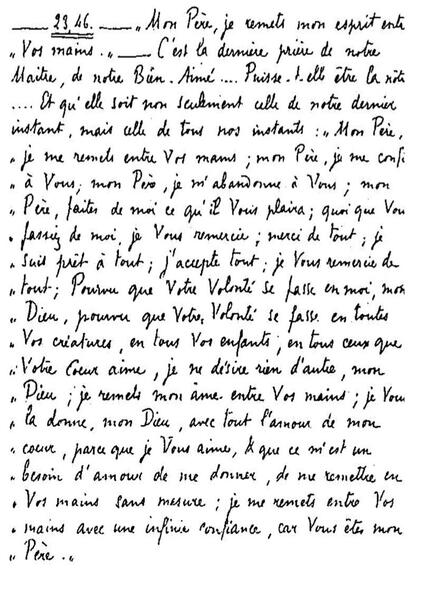 ___ 23,46. ___ „Mon Père, je remets mon esprit entre
„ Vos mains.„ ___ C'est la dernière prière de notre
Maitre, de notre Bien-Aimé .... Puisse-t-elle être la nôtre
.... Et qu'elle soit non seulement celle de notre dernier
instant, mais celle de tous nos instants : „ Mon Père,
„ je me remets entre Vos mains ; mon Père, je me confi
„ à Vous ; mon Père, je m'abandonne à Vous ; mon
„ Père, faites de moi ce qu'il Vous plaira ; quoi que Vou
„ fassiez de moi, je Vous remercie ; merci de tout ; je
„ suis prêt à tout ; j'accepte tout ; je Vous remercie de
„ tout ; Pourvu que Votre Volonté se fasse en moi, mon
„ Dieu, pourvu que Votre Volonté se fasse en toutes
„ Vos créatures, en tous Vos enfants, en tous ceux que
„ Votre Coeur aime, je ne désire rien d'autre, mon
„ Dieu ; je remets mon âme entre Vos mains ; je Vou
„ la donne, mon Dieu, avec tout l'amour de mon
„ coeur, parce que je Vous aime, & que ce m'est un
„ besoin d'amour de me donner, de me remettre en
„ Vos mains sans mesure ; je me remets entre Vos
„ mains avec une infinie confiance, car Vous êtes mon
„ Père.„